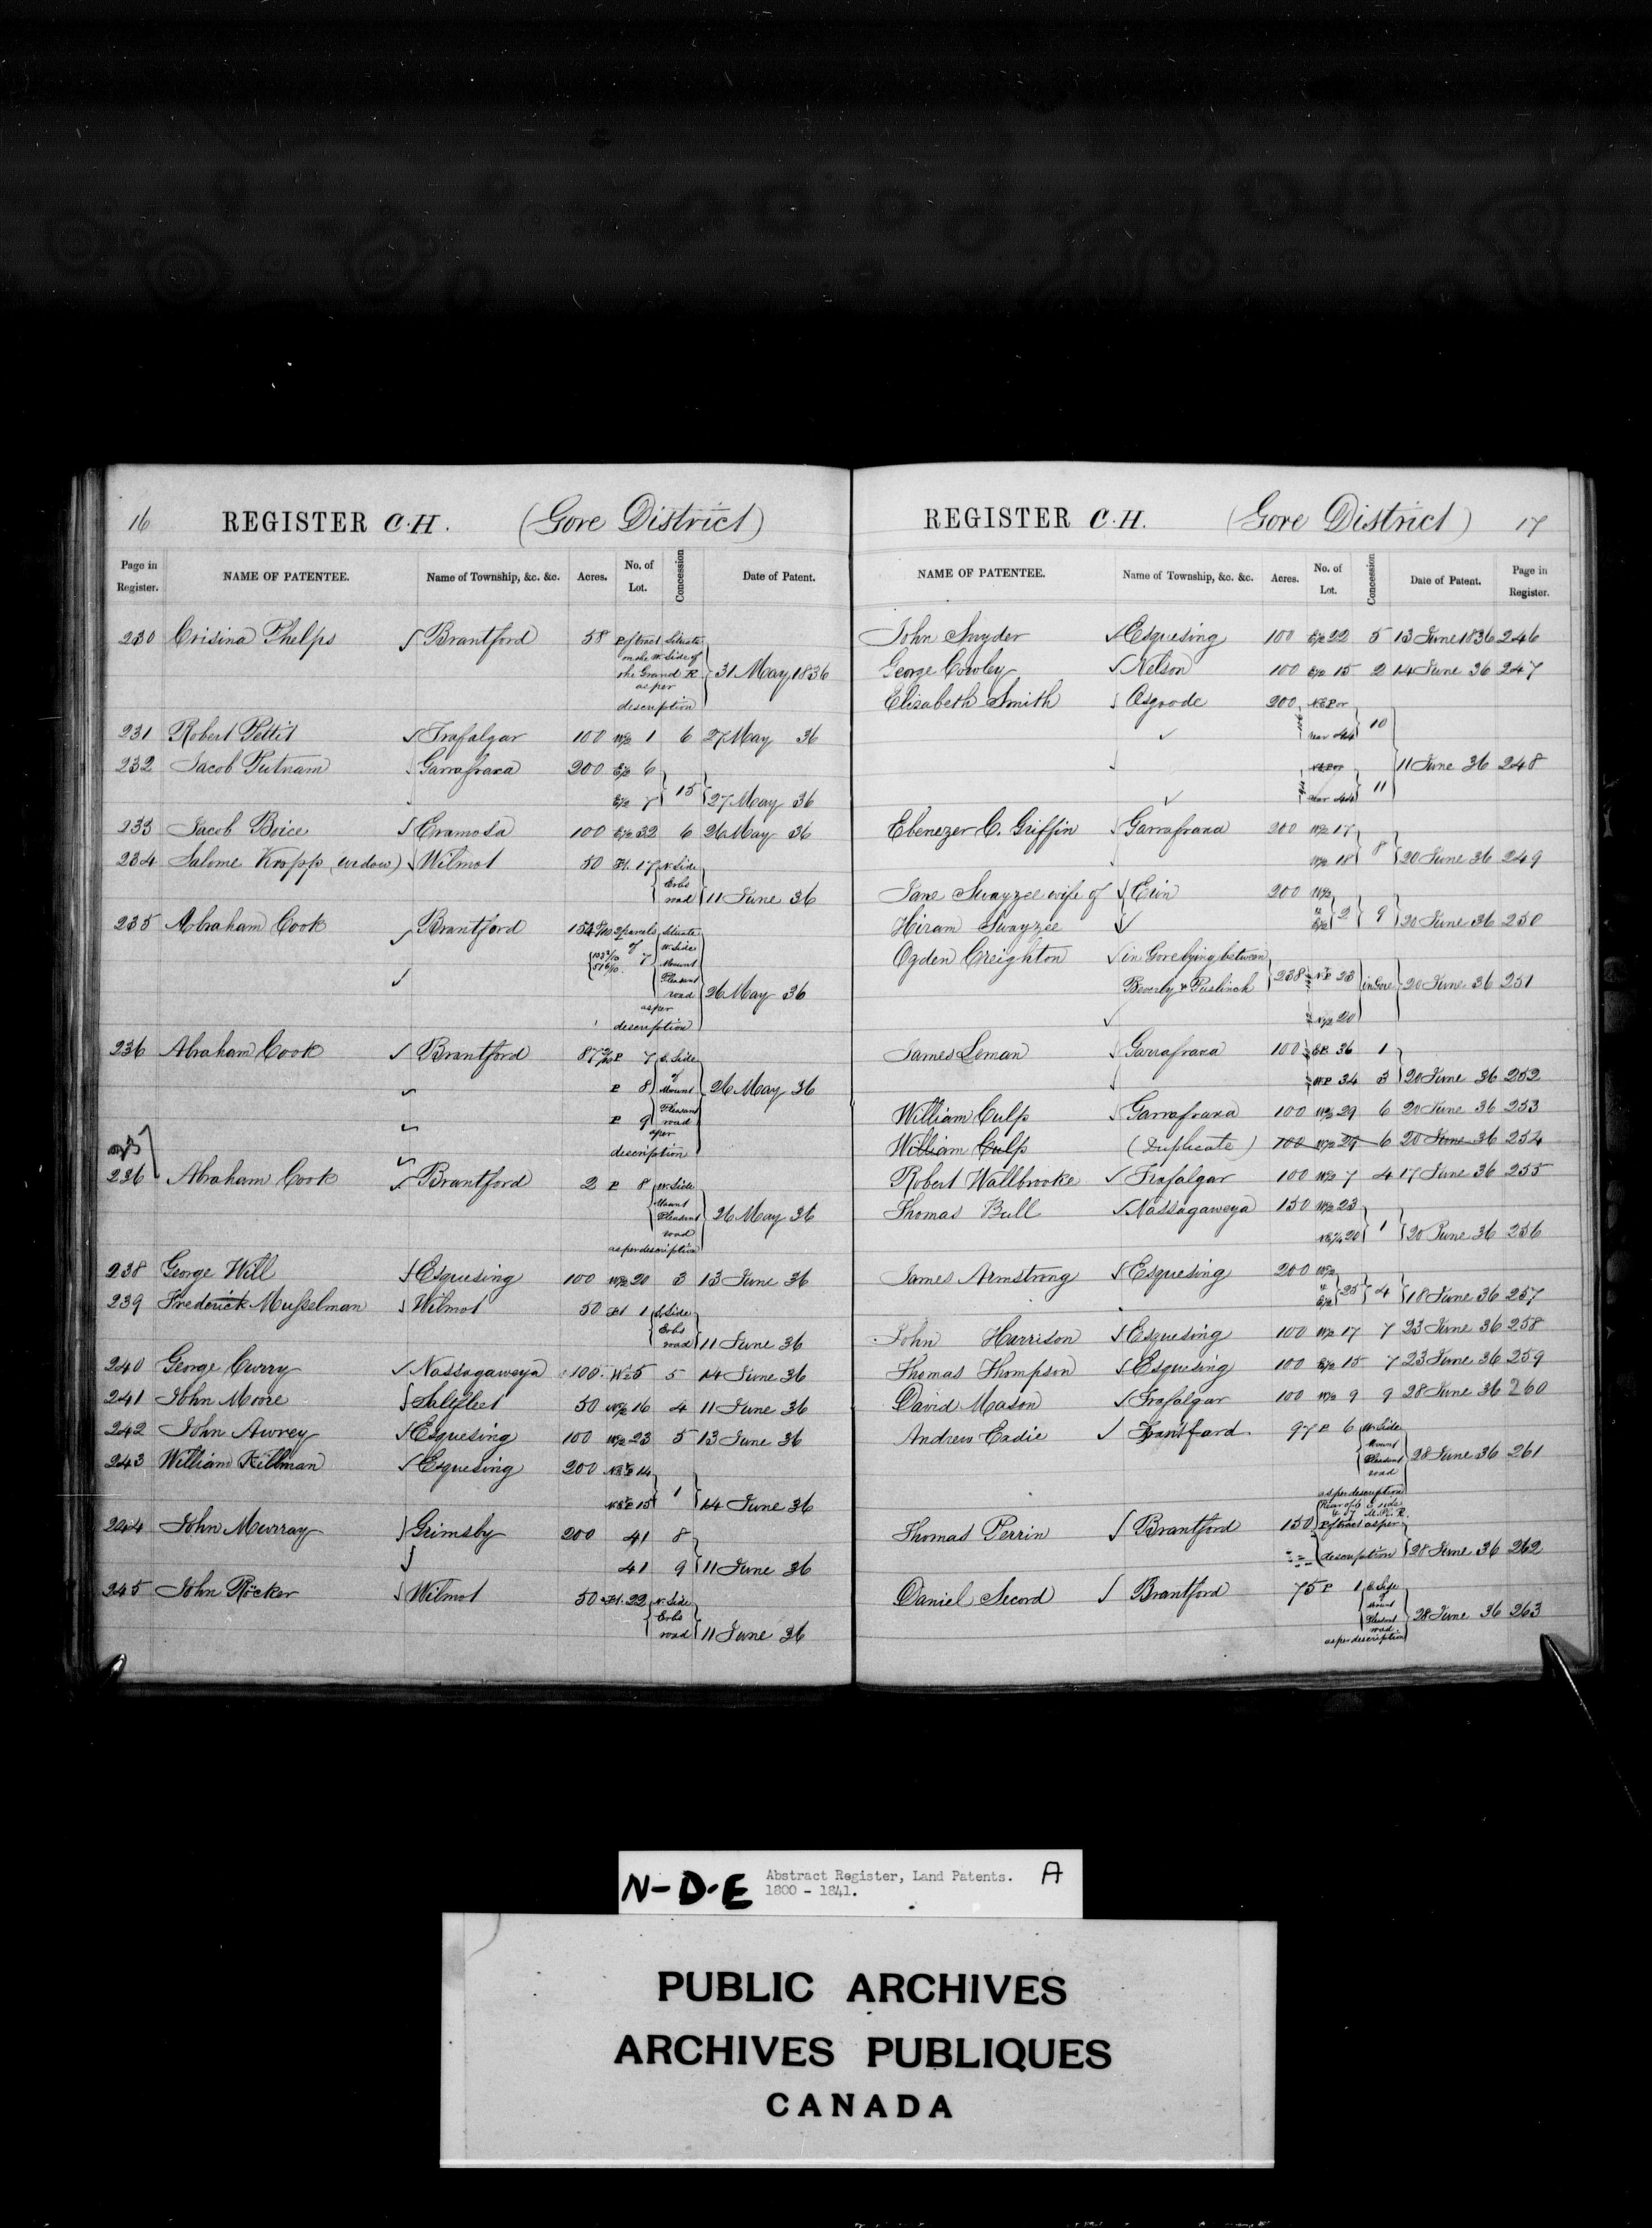 16 REGISTER C.H. (Gore District)
Page in Register. NAME OF PATENTEE. Name of Township, &c. &c. Acres. No. of Lot. Concession Date of Patent.
230 Crisina Phelps Brantford 58 P of tract Situate
on the W. Side of
the Grand R 31 May 1836
as per
description
231 Robert Pettit Trafalgar 100 W½ 1 6 27 May 36
232 Jacob Putnam Garrafraxa 200 E½ 6
E½ 7 15 27 May 36
233 Jacob Boice Eramosa 100 E½ 32 6 26 May 36
234 Salome Kropp (widow) Wilmot 50 17 N. Side
Erbs
road 11 June 36
235 Abraham Cook Brantford 2 parcels Situate
of W. Side
7 Mount
Pleasant
road 26 May 36
as per
description
236 Abraham Cook Brantford P 7 E. Side
of
P 8 Mount 26 May 36
Pleasant
P 9 road
as per
description
236 Abraham Cook Brantford 2 P 8 W. Side
Mount
Pleasant 26 May 36
road
as per description
238 George Will Esquesing 100 W½ 20 3 13 June 36
239 Frederick Musselman Wilmot 50 1 S. Side
Erbs
road 11 June 36
240 George Curry Nassagaweya 100 W½ 5 5 14 June 36
241 John Moore Saltfleet 50 16 4 11 June 36
242 John Awrey Esquesing 100 W½ 23 5 13 June 36
243 William Killman Esquesing 200 14
15 1 14 June 36
244 John Murray Grimsby 200 41 8
41 9 11 June 36
245 John Röcker Wilmot 50 22 N. Side
Erbs
road 11 June 36
REGISTER C.H. (Gore District) 17
NAME OF PATENTEE. Name of Township, &c. &c. Acres. No. of Lot. Concession Date of Patent. Page in Register.
John Snyder Esquesing 100 E½ 22 5 13 June 1836 246
George Cowley Nelson 100 E½ 15 2 14 June 36 247
Elisabeth Smith Osgoode 200
rear 44 10
11 June 36 248
rear 44 11
Ebenezer C. Griffin Garrafraxa 200 W½ 17
W½ 18 8 20 June 36 249
Jane Swayzee wife of Erin 200 W½
Hiram Swayzee & E½ 2 9 20 June 36 250
Ogden Creighton in Gore lying between
Beverly & Puslinch 238 23 in Gore 20 June 36 251
20
James Leman Garrafraxa 100 EP 36 1
WP 34 3 20 June 36 252
William Culp Garrafraxa 100 W½ 29 6 20 June 36 253
William Culp (Duplicate) 100 W½ 29 6 20 June 36 254
Robert Wallbrooke Trafalgar 100 W½ 7 4 17 June 36 255
Thomas Bull Nassagaweya 150 W½ 23
20 1 20 June 36 256
James Armstrong Esquesing 200 W½
& E½ 25 4 18 June 36 257
John Harrison Esquesing 100 W½ 17 7 23 June 36 258
Thomas Thompson Esquesing 100 E½ 15 7 23 June 36 259
David Mason Trafalgar 100 W½ 9 9 28 June 36 260
Andrew Eadie Brantford 97 P 6 W. Side
Mount
Pleasant 28 June 36 261
road
as per description
Thomas Perrin Brantford 150 P of tract as per
description 28 June 36 262
Daniel Secord Brantford 75 P 1 E. Side
of
Mount
Pleasant 28 June 36 263
road
as per description
N-D-E Abstract Register, Land Patents. A
1800 - 1841.
PUBLIC ARCHIVES
ARCHIVES PUBLIQUES
CANADA